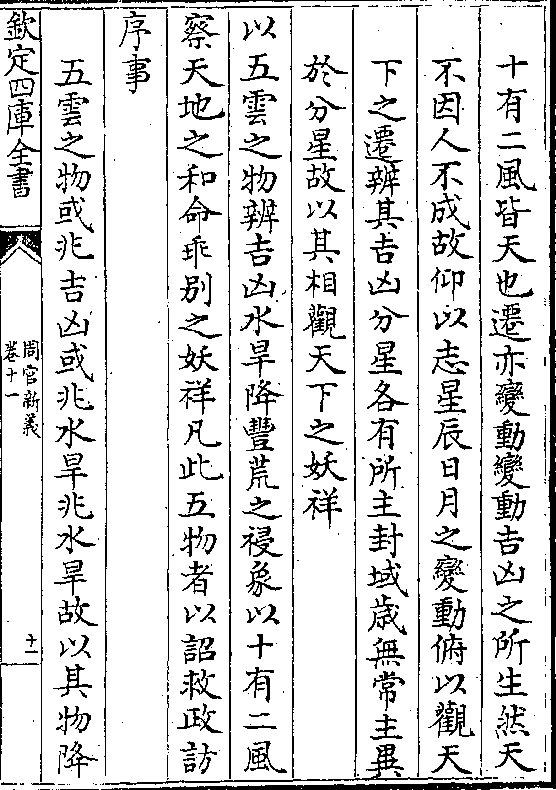 十有二風皆天也遷亦變動變動吉凶之所生然天
不因人不成故仰以志星辰日月之變動俯以觀天
下之遷辨其吉凶分星各有所主封域歲無常主異
於分星故以其相觀天下之妖祥
以五雲之物辨吉凶水旱降豐荒之祲象以十有二風
察天地之和命乖别之妖祥凡此五物者以詔救政訪
序事
五雲之物或兆吉凶或兆水旱兆水旱故以其物降
欽定四庫全書
周官新義
卷十一
十一